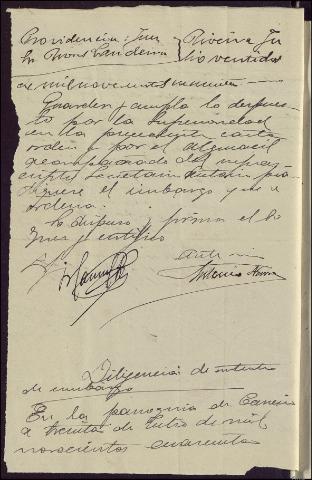 Providencia: Juez
Sr. Rivas Candeira
Riveira Ju
lio veintidos
de mil novecientos cuarenta
Guardese y cumpla lo dispues
to por la Superioridad
en la precedente carta
orden y por el Alguacil
acompañado del infras
cripto Secretario
el embargo que se
ordena.
Lo dispuso y firma el Sr
Juez y certifico
Ante mi
Antonio
Diligencia de intento
de embargo
En la parroquia de Carreira
a treinta de Julio de mil
novecientos cuarenta